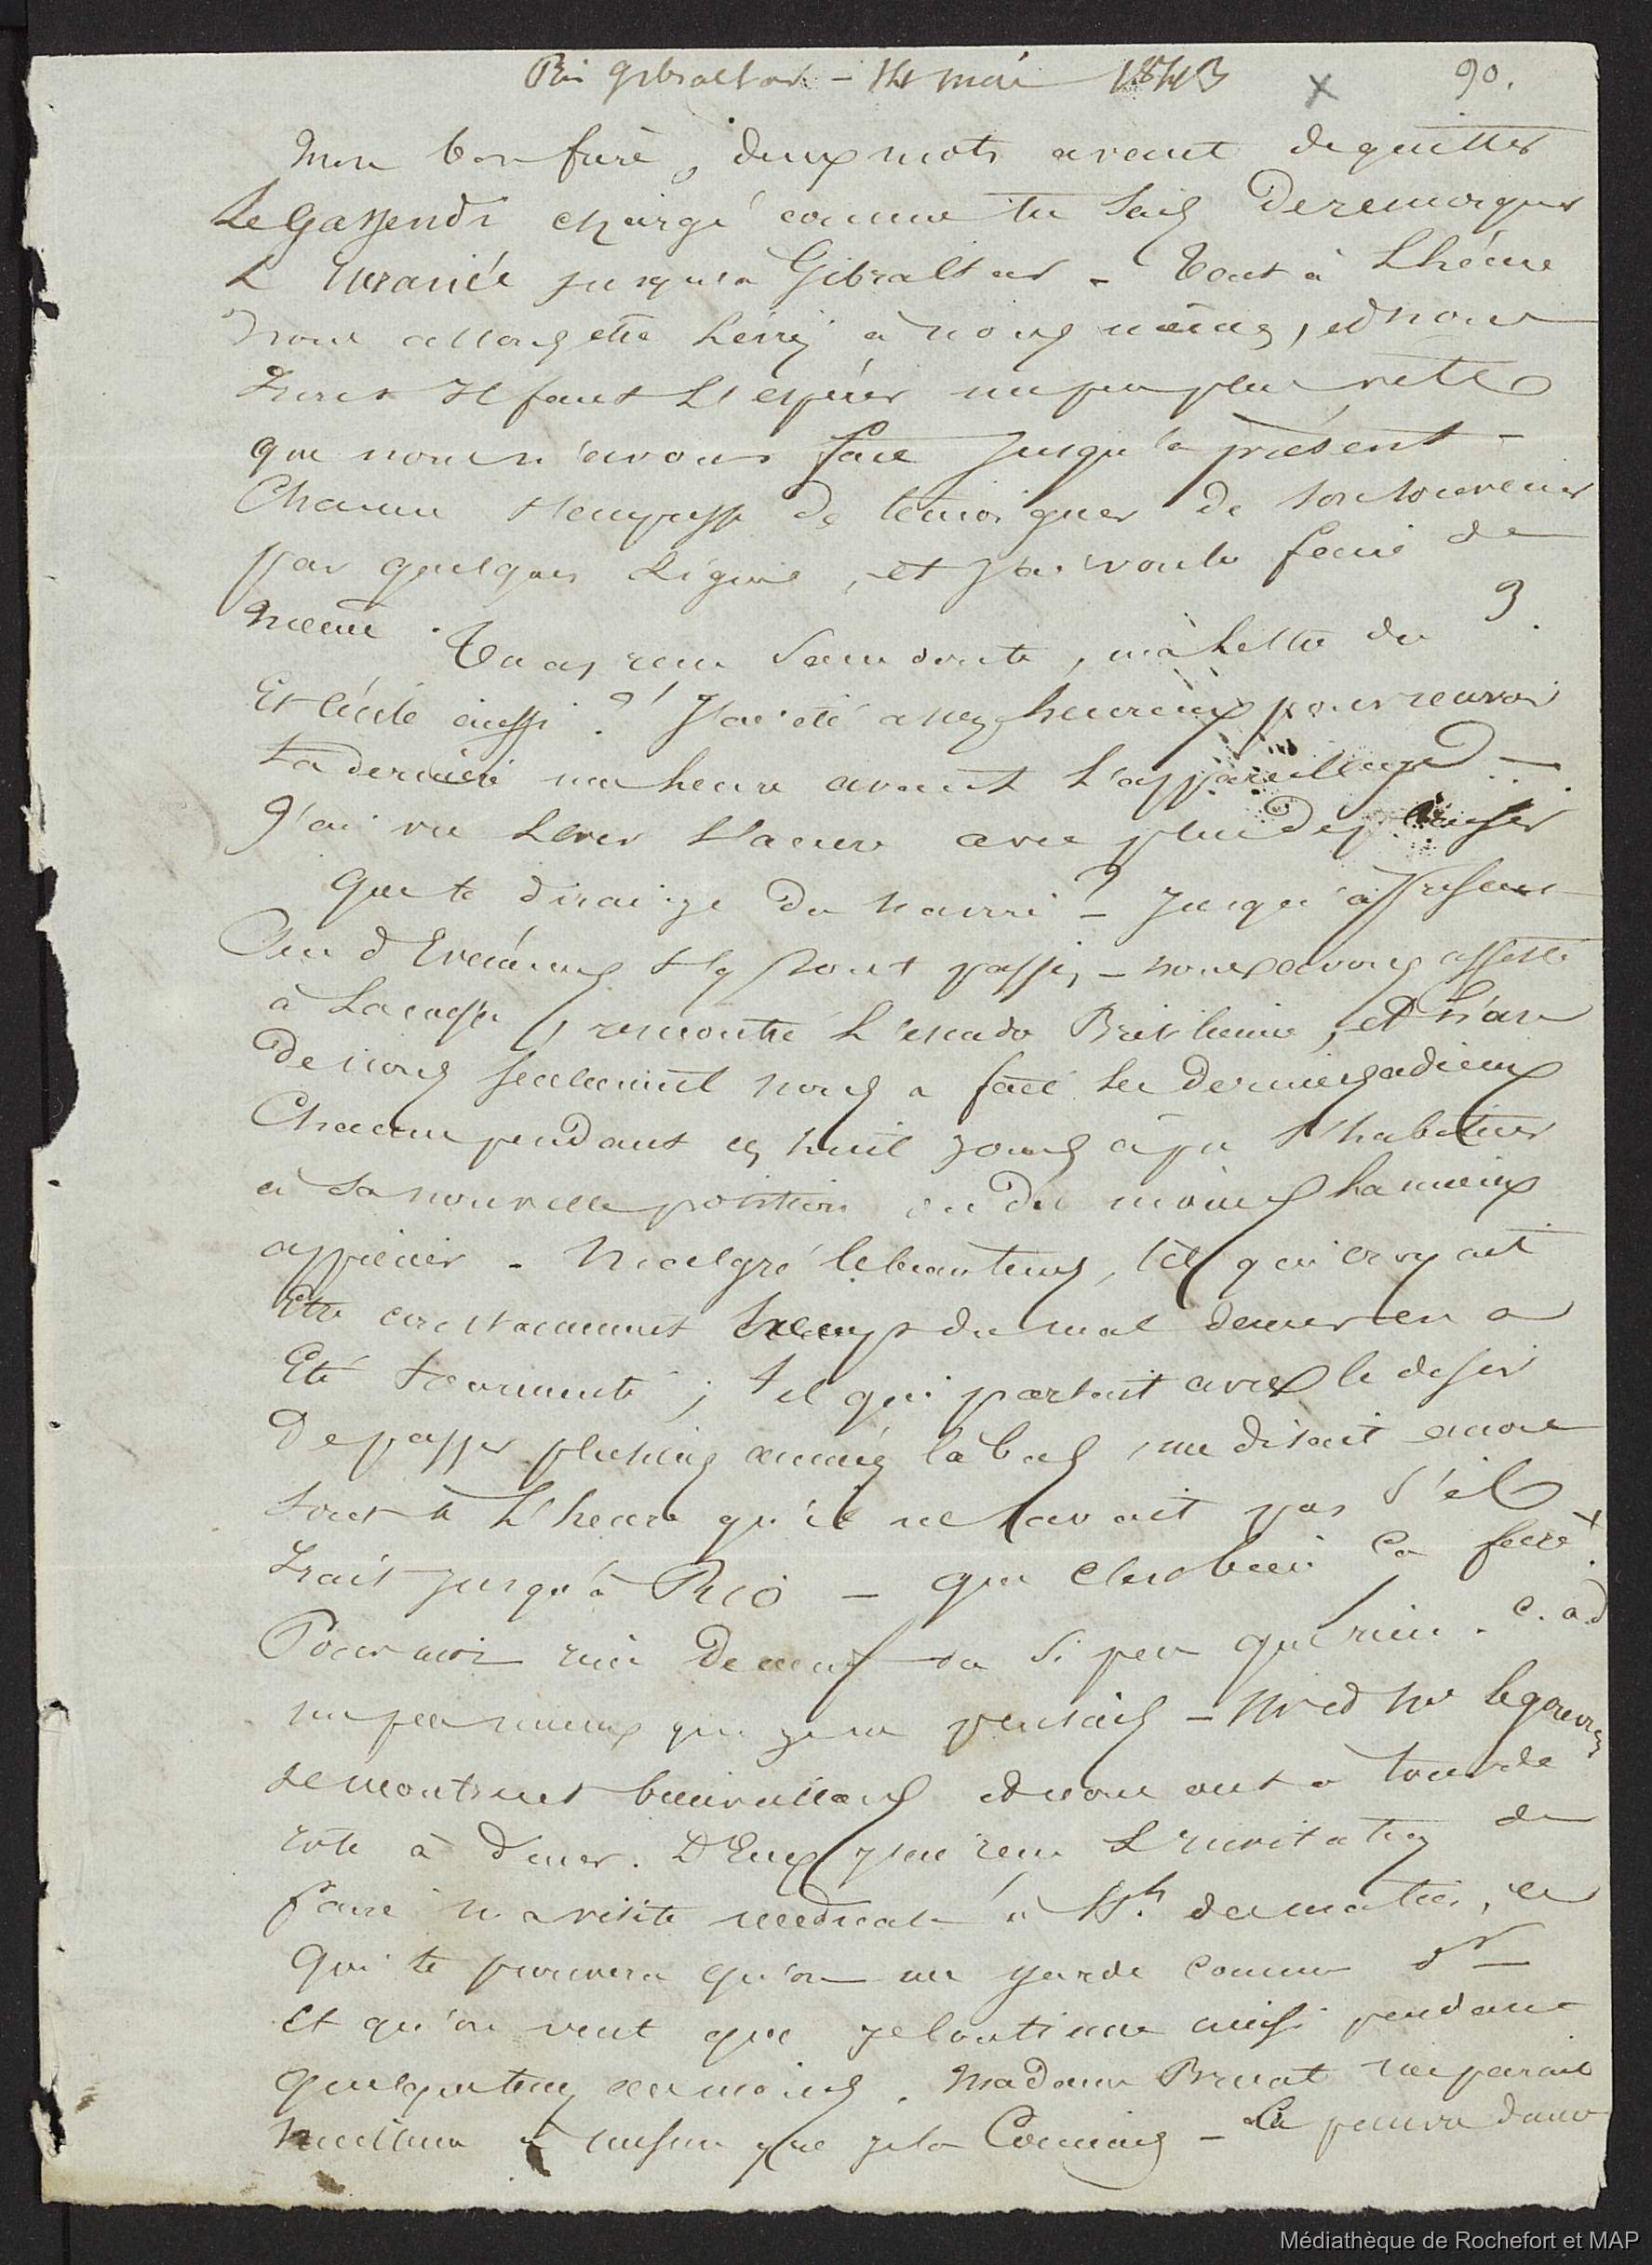 Près Gibraltar - 14 mai 1843
90.
Mon bon frère, deux mots avant de quitter
Le Gassendi chargé comme tu sais De remorquer
L'Uranie jusqu'à Gibraltar - Tout à L'heure
Nous allons être livrés à nous mêmes, et nous
Irons Il faut L'espérer un peu plus vite
que nous n'avons fait Jusqu'à présent -
Chacun s'empresse de témoigner de son souvenir
par quelques Lignes, et J'ai voulu faire de
même. Tu as reçu sans doute, ma Lettre du 9.
Et Cécile aussi ? J'ai été assez heureux pour recevoir
ta dernière une heure avant L'appareillage -
J'ai vu Lever L'ancre avec plus de plaisir
Que te dirai-je Du navire ? - Jusqu'à présent
Peu d'Evénements s'y sont passés - nous avons assisté
à La messe, rencontré L'escadre Brésilienne, et
De nous seulement nous a fait les derniers adieux
Chacun pendant ces huit jours a pu s'habituer
à sa nouvelle position ou du moins La mieux
apprécier - Malgré le beau temps, tel qui croyait
Etre constamment exempt du mal de mer en a
Eté tourmenté ; tel qui partait avec le désir
De passer plusieurs années là bas, me disait encore
tout à L'heure qu'il ne savait pas s'il
Irait jusqu'à Rio - que c'est bien ça
Pour moi rien De neuf ou si peu que rien. c. a. d
un peu mieux que je ne pensais - Mr et Me
se montrent bienveillants et nous ont à tour de
rôle à diner. D'Eux j'ai reçu L'invitation de
faire ma visite médicale à 11.h du matin, ce
qui te prouvera qu'on me garde comme Dr
Et qu'on veut que je continue ainsi pendant
quelque temps au moins. Madame Bruat me parait
meilleure à mesure que je la Connais - La pauvre dame
Médiathèque de Rochefort et MAP